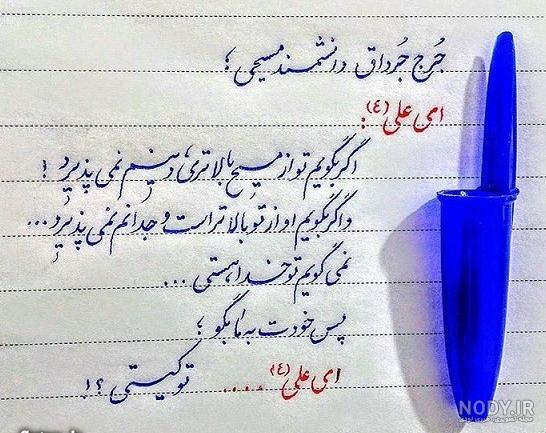 جُرج جُرداق دانشمند مسیحی ؛
ای علی (ع) :
اگر بگویم تو از مسیح بالاتری، دینم نمی پذیرد !
و اگر بگویم او از تو بالاتر است وجدانم نمی پذیرد...
نمی گویم تو خدا هستی ...
پس خودت به ما بگو ؛
ای علی (ع) .... تو کیستی ؟!
NODY.IR